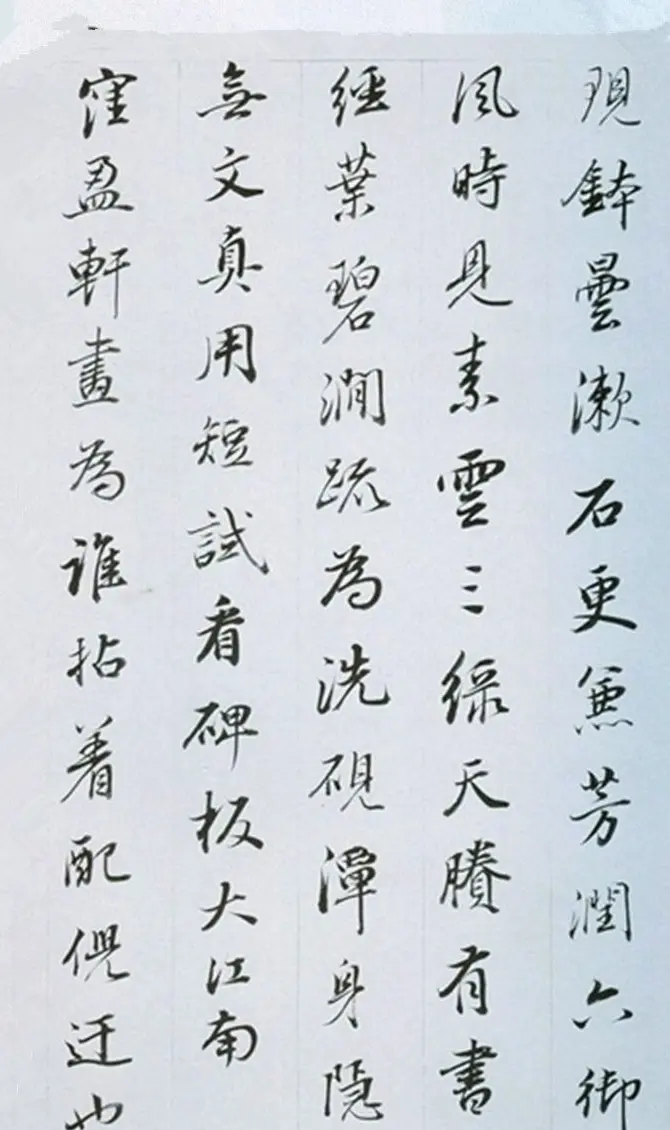 現鉢曇漱石更兼芳潤六御
風時見素雲三綠天賸有書
經葉碧澗疏為洗硯渾身隱
無文真用短試看碑板大江南
窪盈軒畫為誰拈著配倪迂也